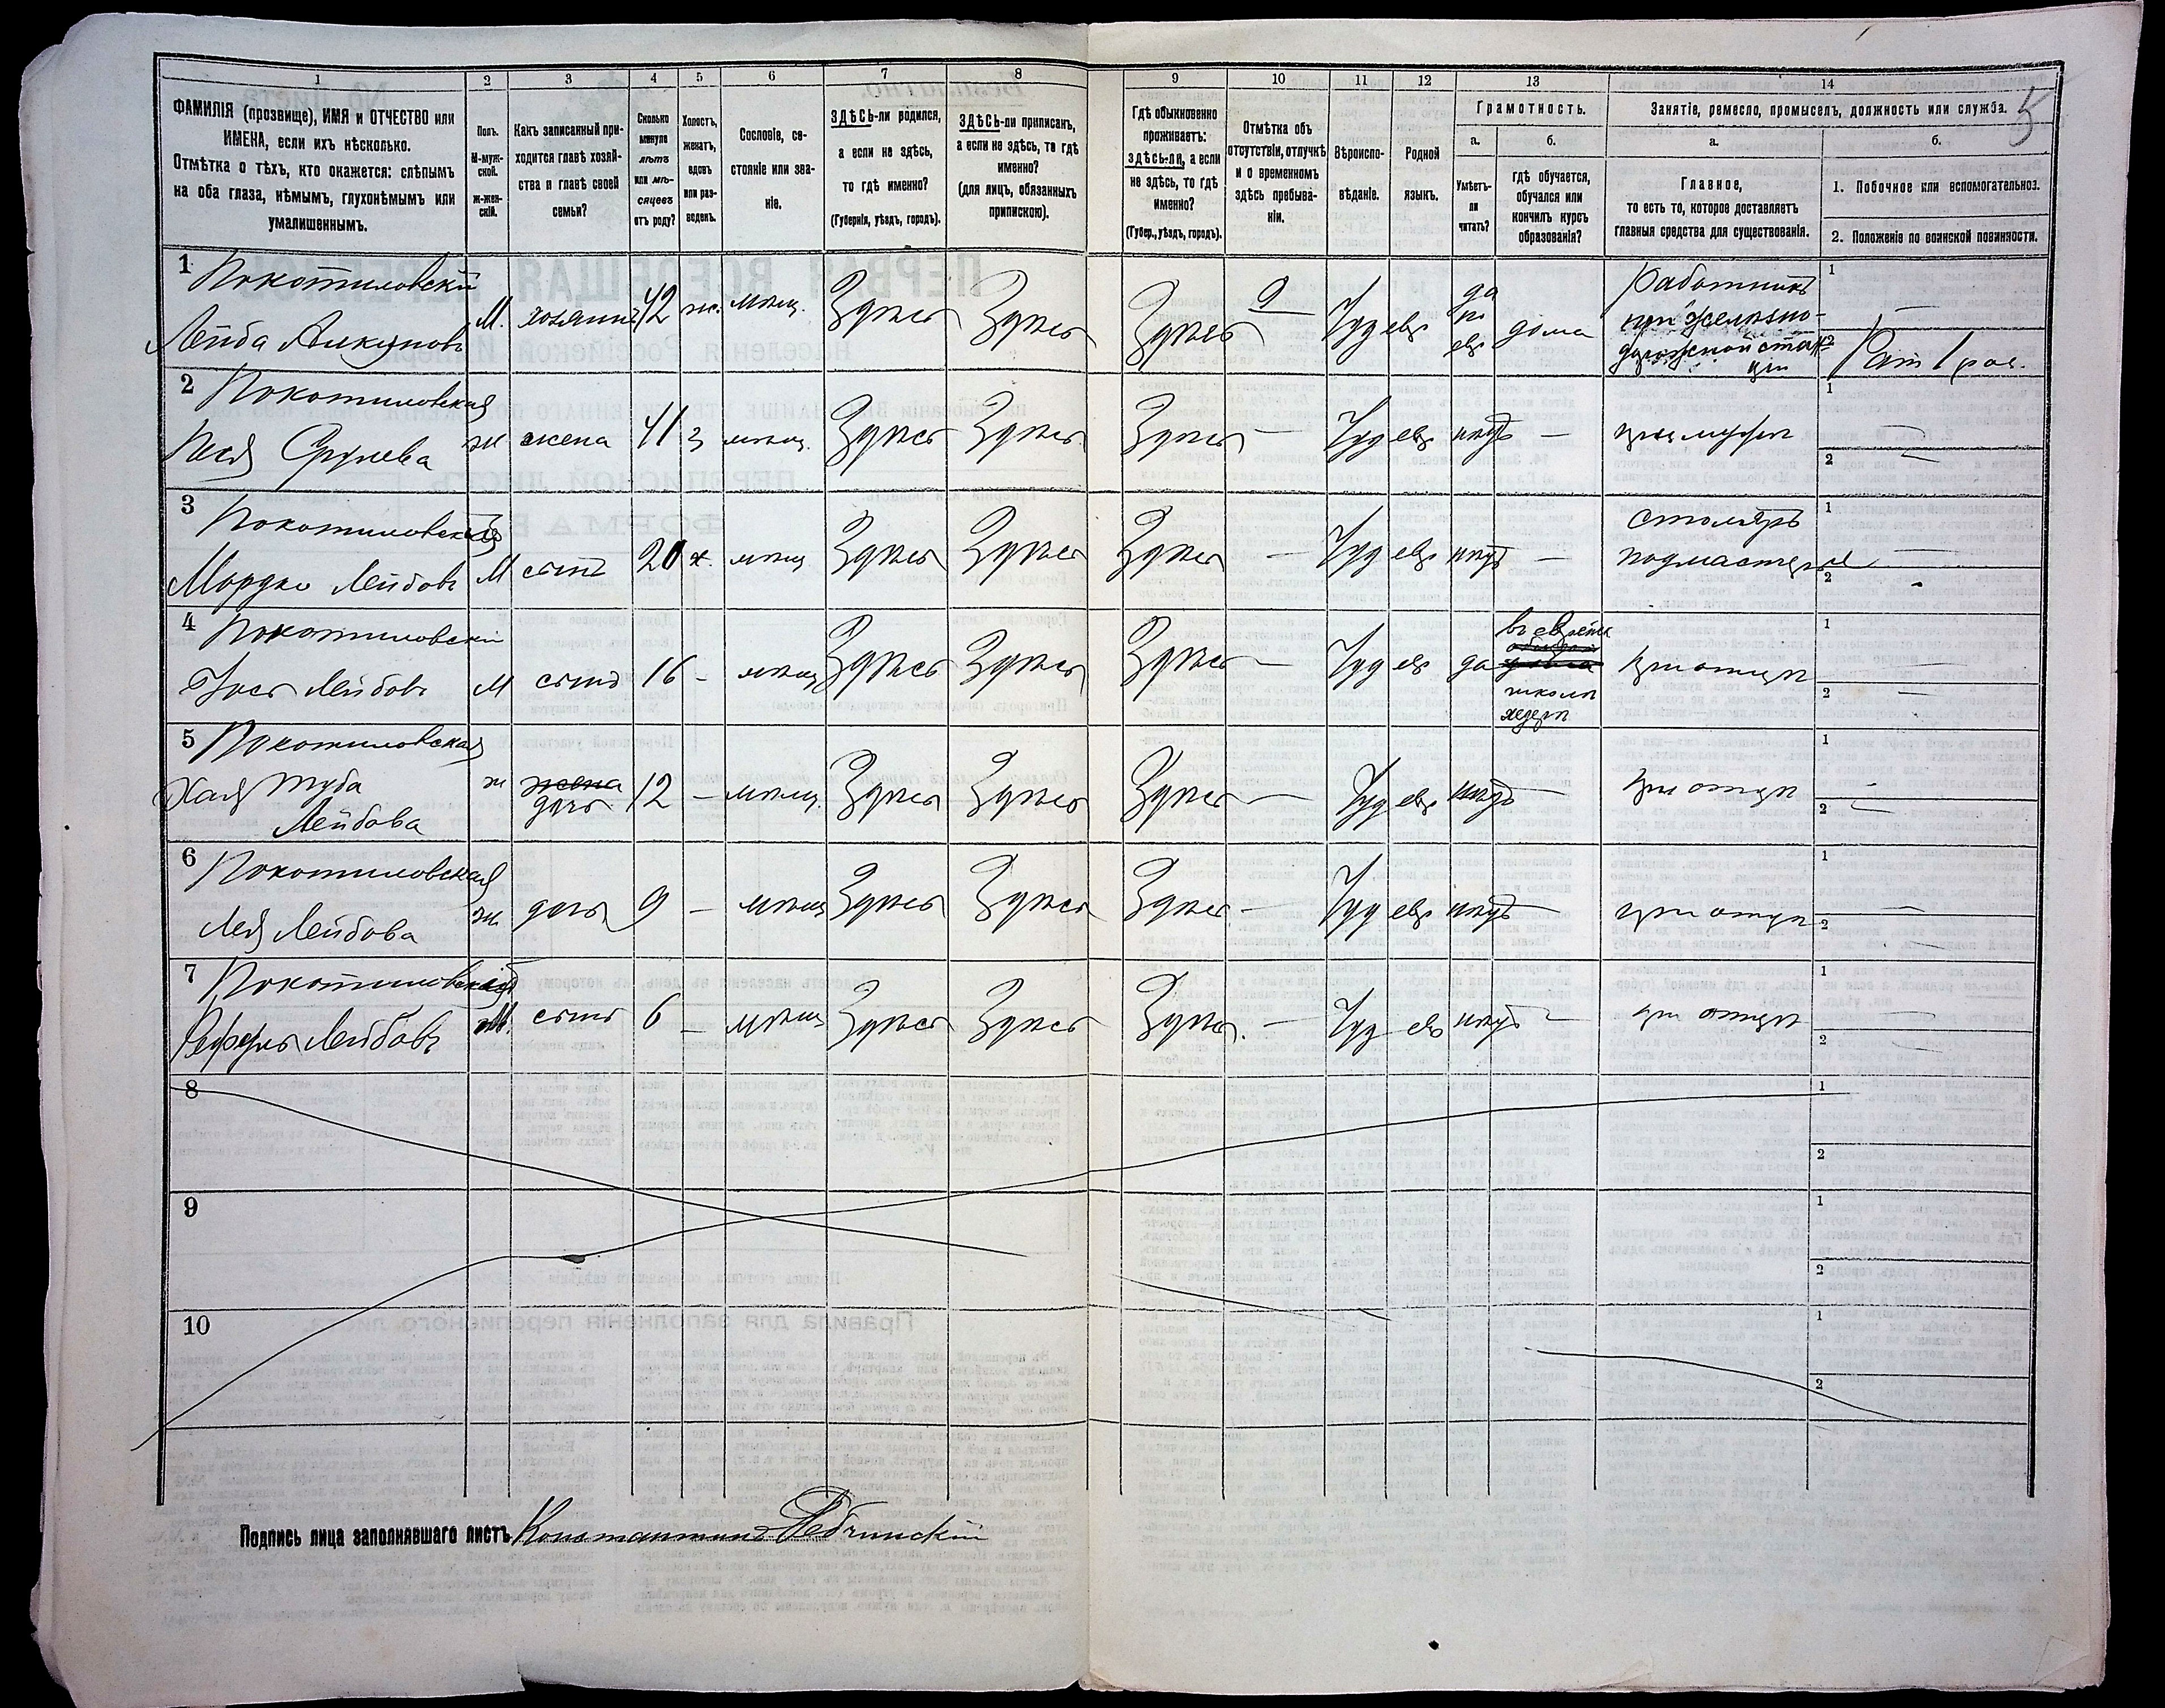 1 2 3 4 5 6 7 8 9 10 11 12 13 14
5
ФАМИЛІЯ (прозвище), ИМЯ и ОТЧЕСТВО или
ИМЕНА, если ихъ нѣсколько.
Отмѣтка о тѣхъ, кто окажется: слѣпымъ
на оба глаза, нѣмымъ, глухонѣмымъ или
умалишеннымъ.
Полъ.
М-муж-
ской.
ж-жен-
скій.
Какъ записанный при-
ходится главѣ хозяй-
ства и главѣ своей
семьи?
Сколько
минуло
лѣтъ
или мѣ-
сяцевъ
отъ роду?
Холостъ,
женатъ,
вдовъ
или раз-
веденъ.
Сословіе, со-
стояніе или зва-
ніе.
ЗДѢСЬ-ли родился,
а если не здѣсь,
то гдѣ именно?
(Губернія, уѣздъ, городъ).
ЗДѢСЬ-ли приписанъ,
а если не здѣсь, то гдѣ
именно?
(для лицъ, обязанныхъ
припискою).
Гдѣ обыкновенно
проживаетъ:
здѣсь-ли, а если
не здѣсь, то гдѣ
именно?
(Губер., уѣздъ, городъ).
Отмѣтка объ
отсутствіи, отлучкѣ
и о временномъ
здѣсь пребыва-
ніи.
Вѣроиспо-
вѣданіе.
Родной
языкъ.
Грамотность.
а.
Умѣетъ-
ли
читать?
б.
гдѣ обучается,
обучался или
кончилъ курсъ
образованія?
Занятіе, ремесло, промыселъ, должность или служба.
а.
Главное,
то есть то, которое доставляетъ
главныя средства для существованія.
б.
1. Побочное или вспомогательное.
2. Положеніе по воинской повинности.
1 Покотиловскій
Лейба
М. хозяинъ 42 ж. мѣщ. Здѣсь Здѣсь Здѣсь — Іуд евр да
по
евр
дома
Работникъ
при желѣзно-
дорожной стан-
ціи
1 —
2 Рат 1 раз.
2 Покотиловская
Песя Срулева
ж жена 41 з мѣщ. Здѣсь Здѣсь Здѣсь — Іуд евр нѣтъ — при мужѣ
1 —
2 —
3 Покотиловскій
Мордко Лейбовъ
М сынъ 20 х. мѣщ Здѣсь Здѣсь Здѣсь — Іуд евр нѣтъ —
столяръ
подмастерье
1 —
2 -
4 Покотиловскій
Лейбовъ
М сынъ 16 - мѣщ Здѣсь Здѣсь Здѣсь — Іуд евр да
въ еврейск
школѣ
хедерѣ
при отцѣ
1 —
2 —
5 Покотиловская
Хая Туба
Лейбова
ж жена
дочь
12 — мѣщ. Здѣсь Здѣсь Здѣсь — Іуд евр нѣтъ — при отцѣ
1 -
2 —
6 Покотиловская
Лея Лейбова
ж дочь 9 — мѣщ Здѣсь Здѣсь Здѣсь — Іуд евр нѣтъ — при отцѣ
1 —
2 —
7 Покотиловскій
Лейбовъ
М. сынъ 6 — мѣщ Здѣсь Здѣсь Здѣсь. — Іуд евр нѣтъ — при отцѣ
1 —
2 —
8
1
2
9
1
2
10
1
2
Подпись лица заполнявшаго листъ Константинъ